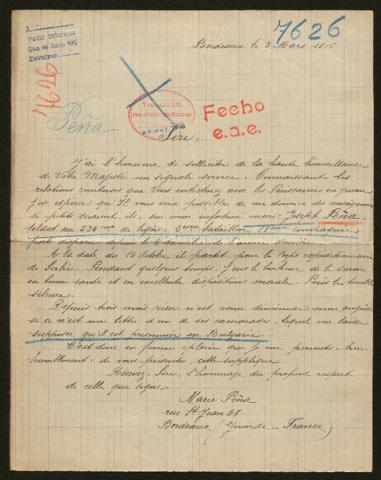 Pedir informes
Que se hade ...
Devolver
7626
7626
Peña
Bordeaux le 3 Mars 1916
Fecho
e.n.e.
Sire,
J'ai l'honneur de solliciter de la haute bienveillance
de Votre Majesté un signalé service. Connaissant les
relations que Vous entretenez avec les Puissances en guerre
j'ose espérer qu'Il vous sera possible de me donner des
si petits soient-il, sur mon infortuné mari: Joseph Peña
soldat au de ligne, 3ème bataillon compagnie
disparu depuis le 6 décembre de l'année dernière.
A la date du 10 Octobre il partit pour le Corps expéditionnaire
de Serbie. Pendant quelque temps j'eus le bonheur de le savoir
en bonne santé et en excellente disposition morale. Puis le terrible
silence.
Depuis trois mois rien n'est venu
si ce n'est une lettre d'un de ses camarades, laquelle me laisse
supposer qu'il est prisonnier en Bulgarie.
C'est donc en femme que je me permets bien
humblement, de vous présenter cette supplique.
Recevez, Sire, l'hommage du profond respect
de celle que signe.
Marie Peña
rue St Jean 68
Bordeaux (Gironde - France)